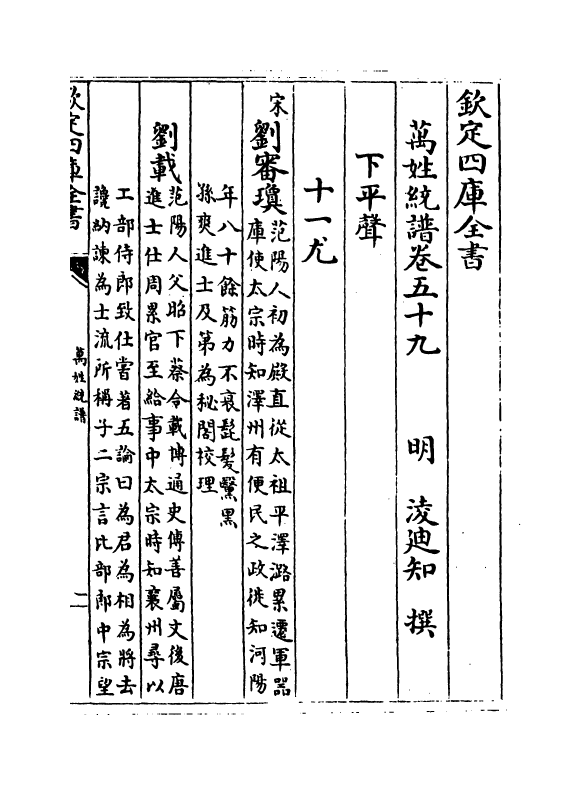 欽定四庫全書
萬姓統譜卷五十九　明　淩迪知　撰
下平聲
十一尤
宋
劉審瓊
范陽人初為殿直從太祖平澤潞累遷軍器
庫使太宗時知澤州有便民之政徙知河陽
年八十餘筋力不衰髭髮鬒黑
孫爽進士及第為秘閣校理
劉載
范陽人父昭下蔡令載博通史傳善屬文後唐
進士仕周累官至給事中太宗時知襄州尋以
工部侍郎致仕嘗著五論曰為君為相為將去
讒納諫為士流所稱子二宗言比部郎中宗望
欽定四庫全書
萬姓統譜